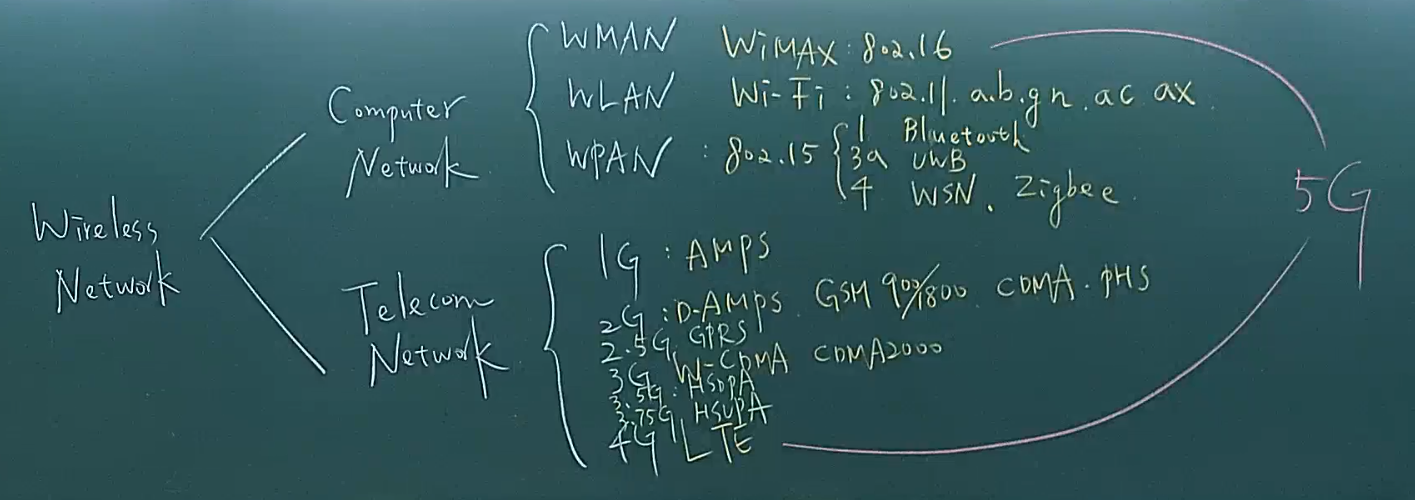 Wireless
Network
Computer
Network
WMAN WiMAX : 802.16
WLAN Wi-Fi : 802.11. a.b.g n. ac ax.
WPAN : 802.15
1 Bluetooth
3a UWB
4 WSN. Zigbee.
Telecom
Network
1G : AMPS
2G : D-AMPS. GSM 900/1800. CDMA. PHS
2.5G GPRS
3G W-CDMA CDMA2000
3.5G : HSDPA
3.75G HSUPA
4G LTE
5G